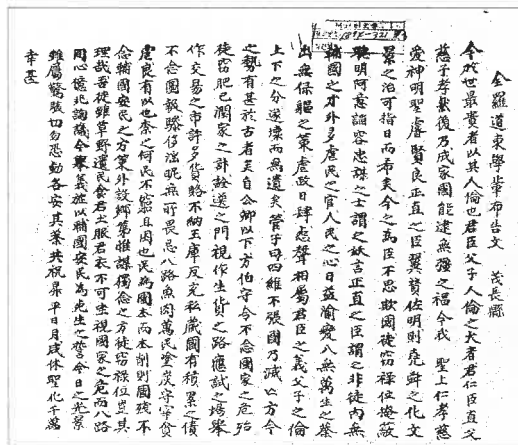 全羅道東學輩布告文 茂長縣
今於世最貴者以其人倫也君臣父子人倫之大者君仁臣直父
慈子孝然後乃成家國能逮無疆之福今我 聖上仁孝慈
愛神明聖睿賢良正直之臣翼贊佐明則堯舜之化文
景之治可指日而希矣今之爲臣不思報國徒窃祿位掩蔽
聰明阿意謟容忠諫之士謂之妖言正直之臣謂之非徒內無
輔國之才外多虐民之官人民之心日益渝變入無樂生之業
出無保軀之策虐政日肆惡聲相屬君臣之義父子之倫
上下之分遂壞而無遺矣管子曰四維不張國乃滅亡方今
之勢有甚於古者矣自公卿以下方伯守令不念國家之危殆
徒窃肥己潤家之計銓選之門視作生貨之路應試之場擧
作交易之市許多貨賂不納王庫反充私藏國有積累之債
不念圖報驕侈淫昵無所畏忌八路魚肉萬民塗炭守宰貪
虐良有以也奈之何民不窮且困也民爲國本而本削則國殘不
念輔國安民之方策外設鄕第惟謀獨念之方徒窃祿位豈其
理哉吾徒雖草野遺民食君土服君衣不可坐視國家之危而八路
同心億兆詢議今擧義旗以輔國安民爲死生之誓今日之光景
雖屬驚駭切勿恐動各安其業共祝昇平日月咸休聖化千萬
幸甚